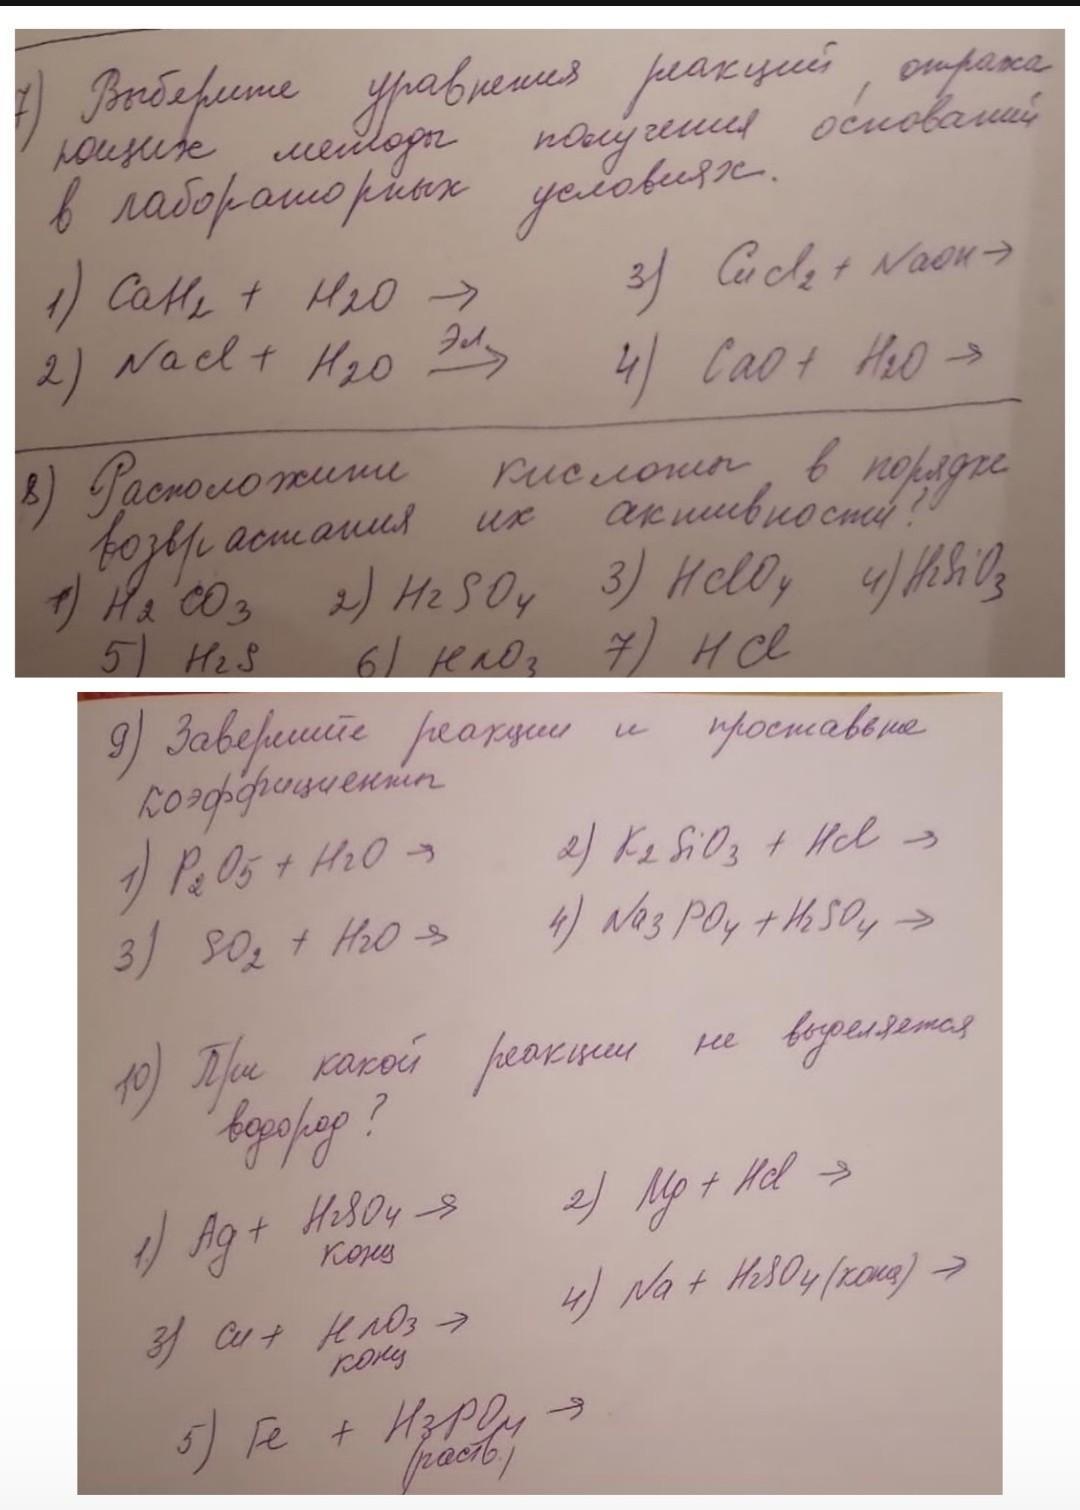 7) Выберите уравнения реакций, отража
ющих методы получения оснований
в лабораторных условиях.
1) CaH2 + H2O → 3) CuCl2 + NaOH →
2) NaCl + H2O Эл. → 4) CaO + H2O →
8) Расположите кислоты в порядке
возврастания их активности?
1) H2CO3 2) H2SO4 3) HClO4 4) H2SiO3
5) H2S 6) HNO3 7) HCl
9) Завершите реакции и проставьте
коэффициенты
1) P2O5 + H2O → 2) K2SiO3 + HCl →
3) SO2 + H2O → 4) Na3PO4 + H2SO4 →
10) При какой реакции не выделяется
водород?
1) Ag + H2SO4 → 2) Mg + HCl →
конц
3) Cu + HNO3 → 4) Na + H2SO4 (конц) →
конц
5) Fe + H3PO4 →
(раств.)